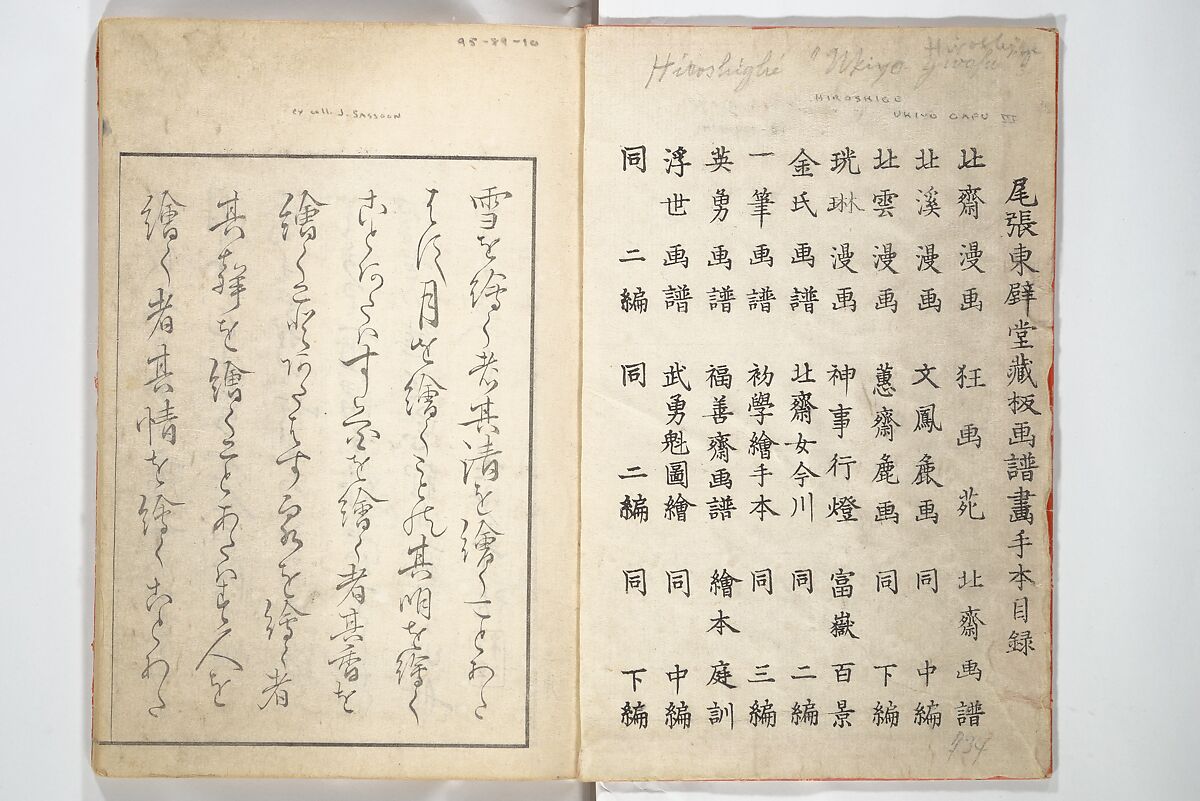 Hiroshighe "Ukiyo gwafu"
Hiroshige
HIROSHIGE
UKIYO GAFU III
尾張東壁堂藏板画譜畫手本目録
北齋漫画 狂画苑 北齋画譜
北溪漫画 文鳳麁画 同 中編
北雲漫画 蕙齋麁画 同 下編
珖琳漫画 神事行燈 富嶽百景
金氏画譜 北齋女今川 同 二編
一筆画譜 初學繪手本 同 三編
英勇画譜 福善齋画譜 繪本庭訓
浮世画譜 武勇魁圖繪 同 中編
同 二編 同 二編 同 下編
734
95-89-10
ex coll. J. SASSOON
雪を繪く者其清を繪くことあた
はす月を繪くもの其明を繪く
ことあたはす花を繪く者其香を
繪くことあたはす泉を繪く者
其聲を繪くことあたはす人を
繪く者其情を繪くことあた